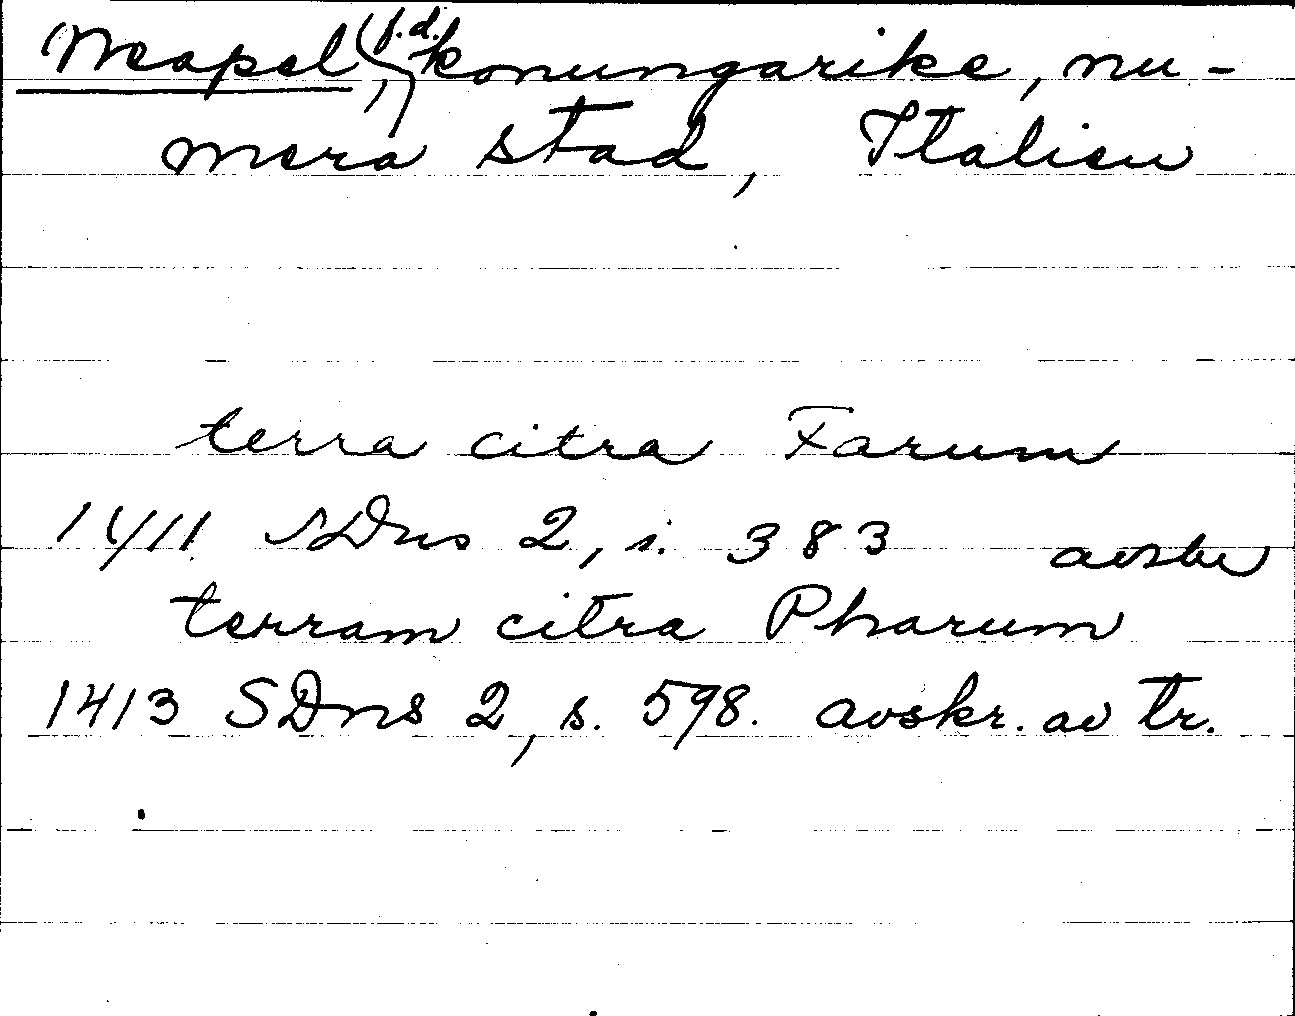 Neapel, f.d. konungarike, nu-
mera stad, Italien
terra citra Farum
1411 SDns 2, s. 383 avskr
terram citra Pharum
1413 SDns 2, s. 598. avskr. av tr.